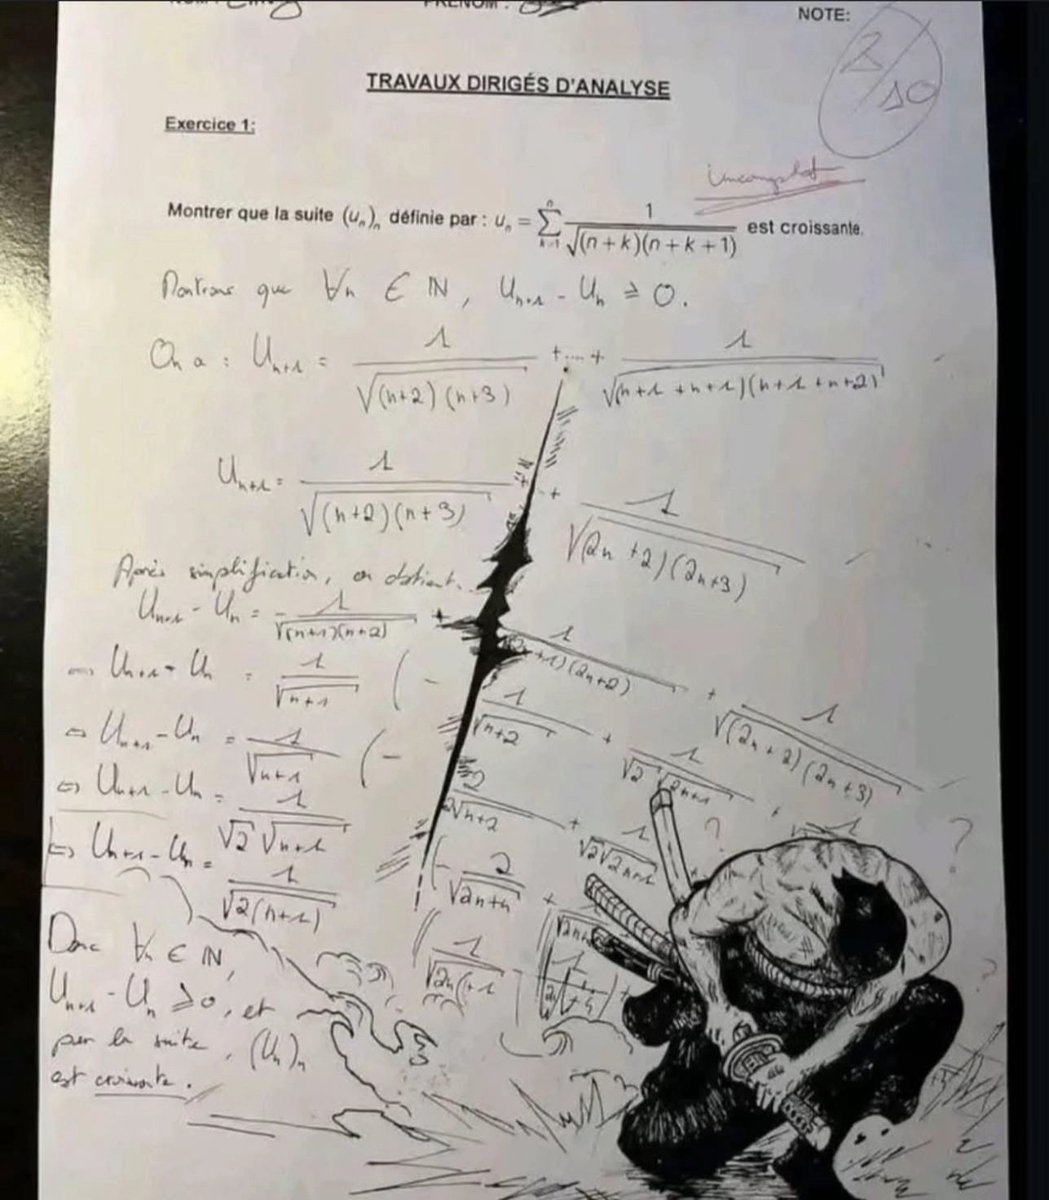 PRÉNOM :
NOTE:
2/10
TRAVAUX DIRIGÉS D'ANALYSE
Exercice 1:
incomplet
Montrer que la suite (u_n)_n définie par : u_n = ∑_{k=1}^{n} 1/√((n+k)(n+k+1)) est croissante.
Montrons que ∀n ∈ ℕ, U_{n+1} - U_n ≥ 0.
On a : U_{n+1} = 1/√((n+2)(n+3)) + .... + 1/√((n+1+n+1)(n+1+n+2))
U_{n+1} = 1/√((n+2)(n+3)) + 1/√((2n+2)(2n+3))
Après simplification, on obtient
U_{n+1} - U_n = - 1/√((n+1)(n+2)) + 1/√((2n+1)(2n+2)) + 1/√((2n+2)(2n+3))
⇔ U_{n+1} - U_n = 1/√(n+1) ( - 1/√(n+2) + 1/(√2 √(2n+1)) +
⇔ U_{n+1} - U_n = 1/√(n+1) ( - 2/(2√(n+2)) + 1/(√2 √(2n+1))
⇔ U_{n+1} - U_n = 1/(√2 √(n+1)) ( - 2/√(2n+4) +
⇔ U_{n+1} - U_n = 1/√(2(n+1))
? ? ?
Donc ∀n ∈ ℕ,
U_{n+1} - U_n ≥ 0, et
par la suite, (U_n)_n
est croissante.